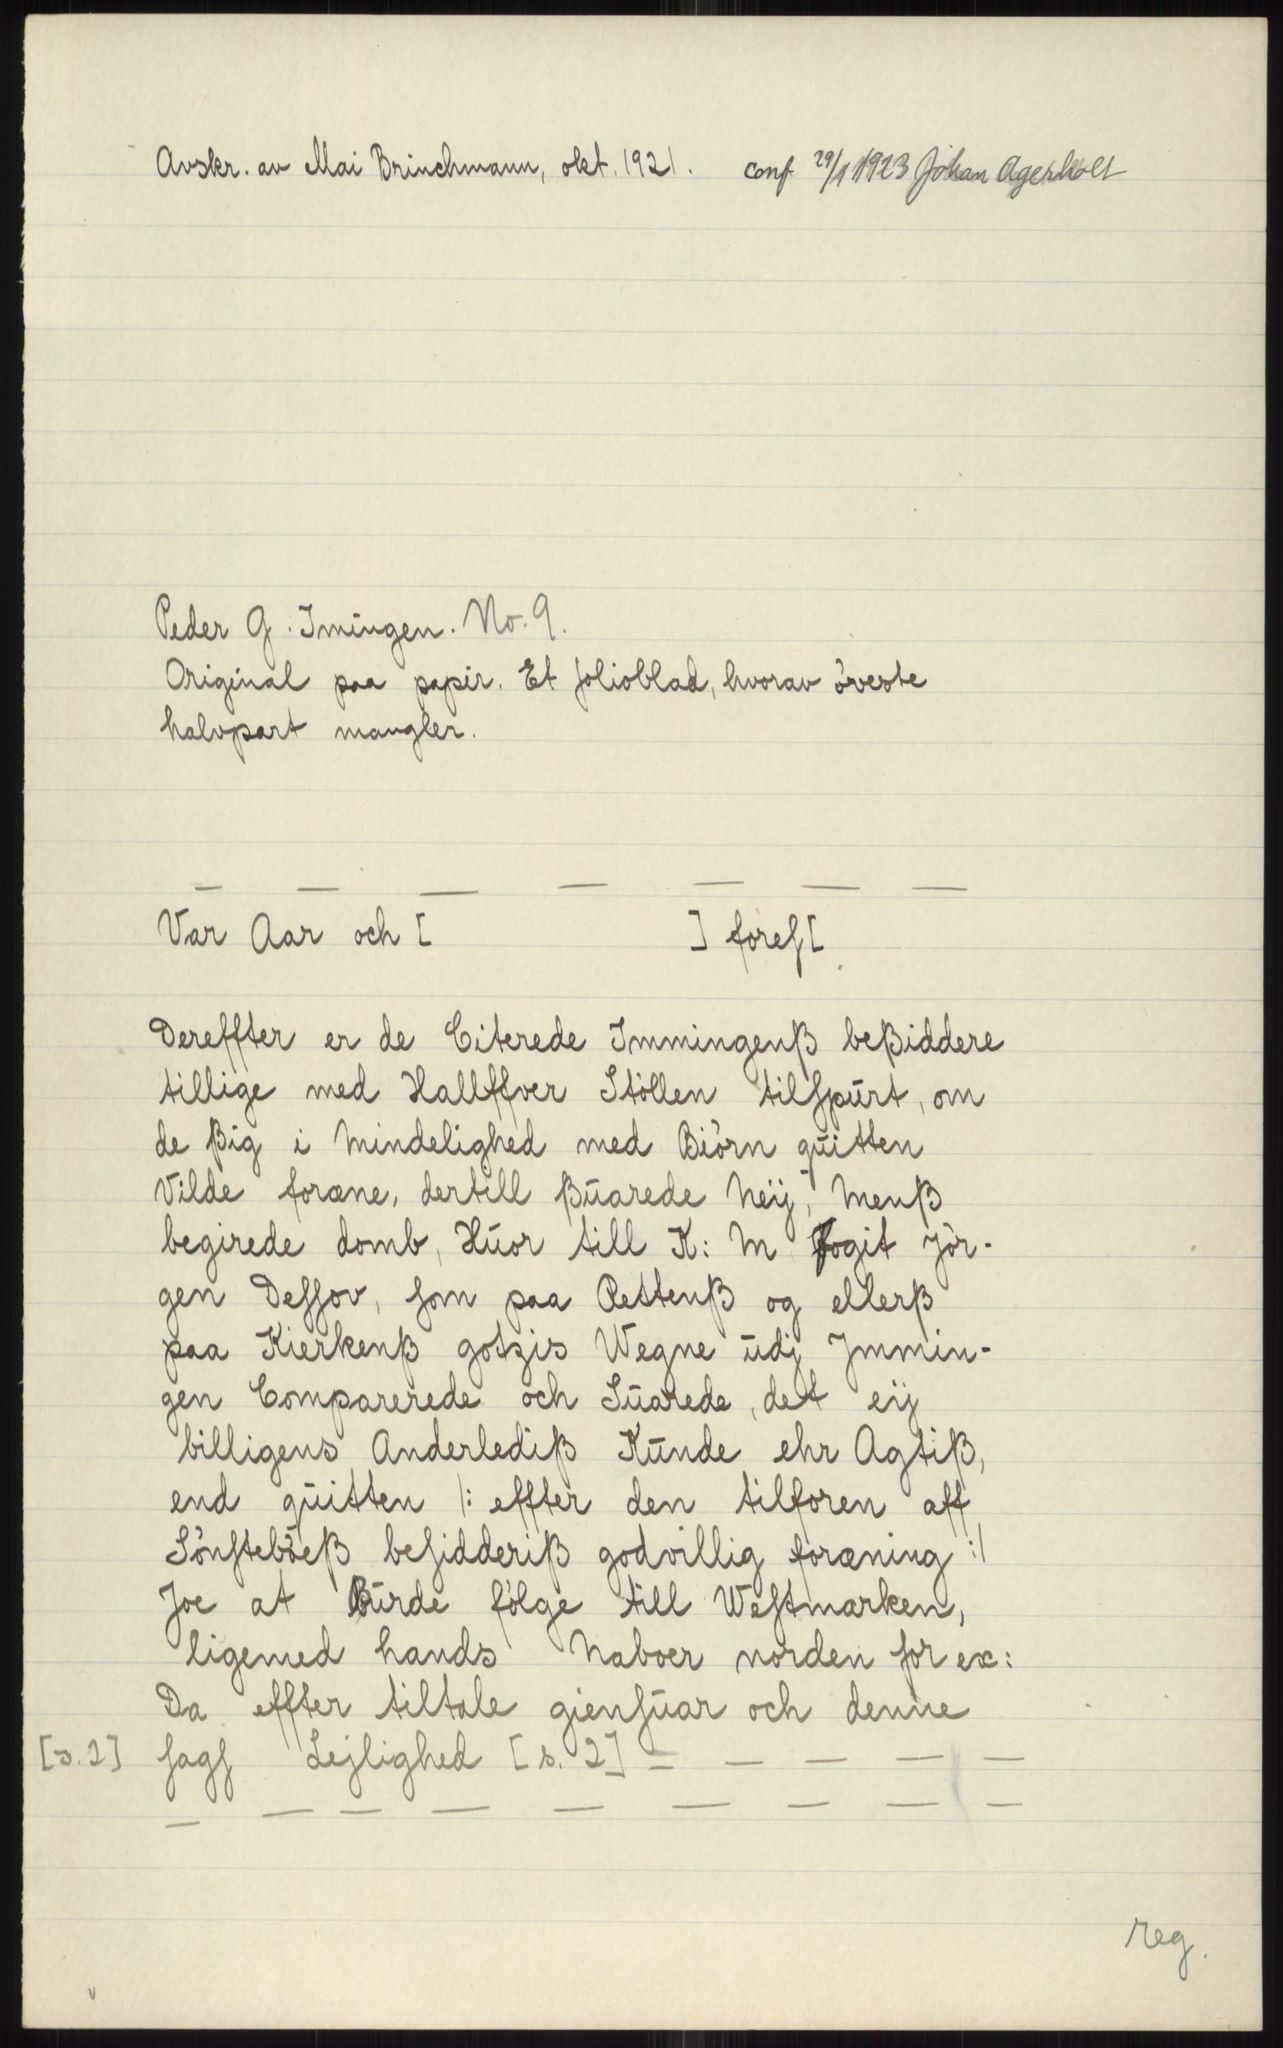 Avskr. av Mai Brinchmann, okt. 1921. conf 29/1 1923 Johan Agerholt
Peder G. Imingen. No. 9.
Original paa papir. Et folioblad, hvorav överste
halvpart mangler.
— — — — — — —
Var Aar och [ ] foreſ[
Dereffter er de Citerede Immingenß beßiddere
tillige med Hallffver Stöllen tilſpūrt, om
de ßig i Mindelighed med Biörn qūitten
Vilde foræne, dertill ßūarede Neij, Menß
begirede domb, Hūor till K: M Fogit Jör-
gen Deſſov, ſom paa Rettenß og ellerß
paa Kierkenß gotzis Wegne ūdj Jmmin-
gen Comparerede och Sūarede, det eij
billigens Anderlediß Kūnde ehr Agtiß,
end qūitten /: effter den tilforen aff
Sönſteböeß beſidderiß godvillig foræning :/
Joe at Būrde fölge till Weſtmarken,
ligemed hands Naboer norden for ex:
Da effter tiltale gienſūar och denne
[s. 2] ſagſ Lejlighed [s. 2] — — — — —
— — — — — — — —
reg.